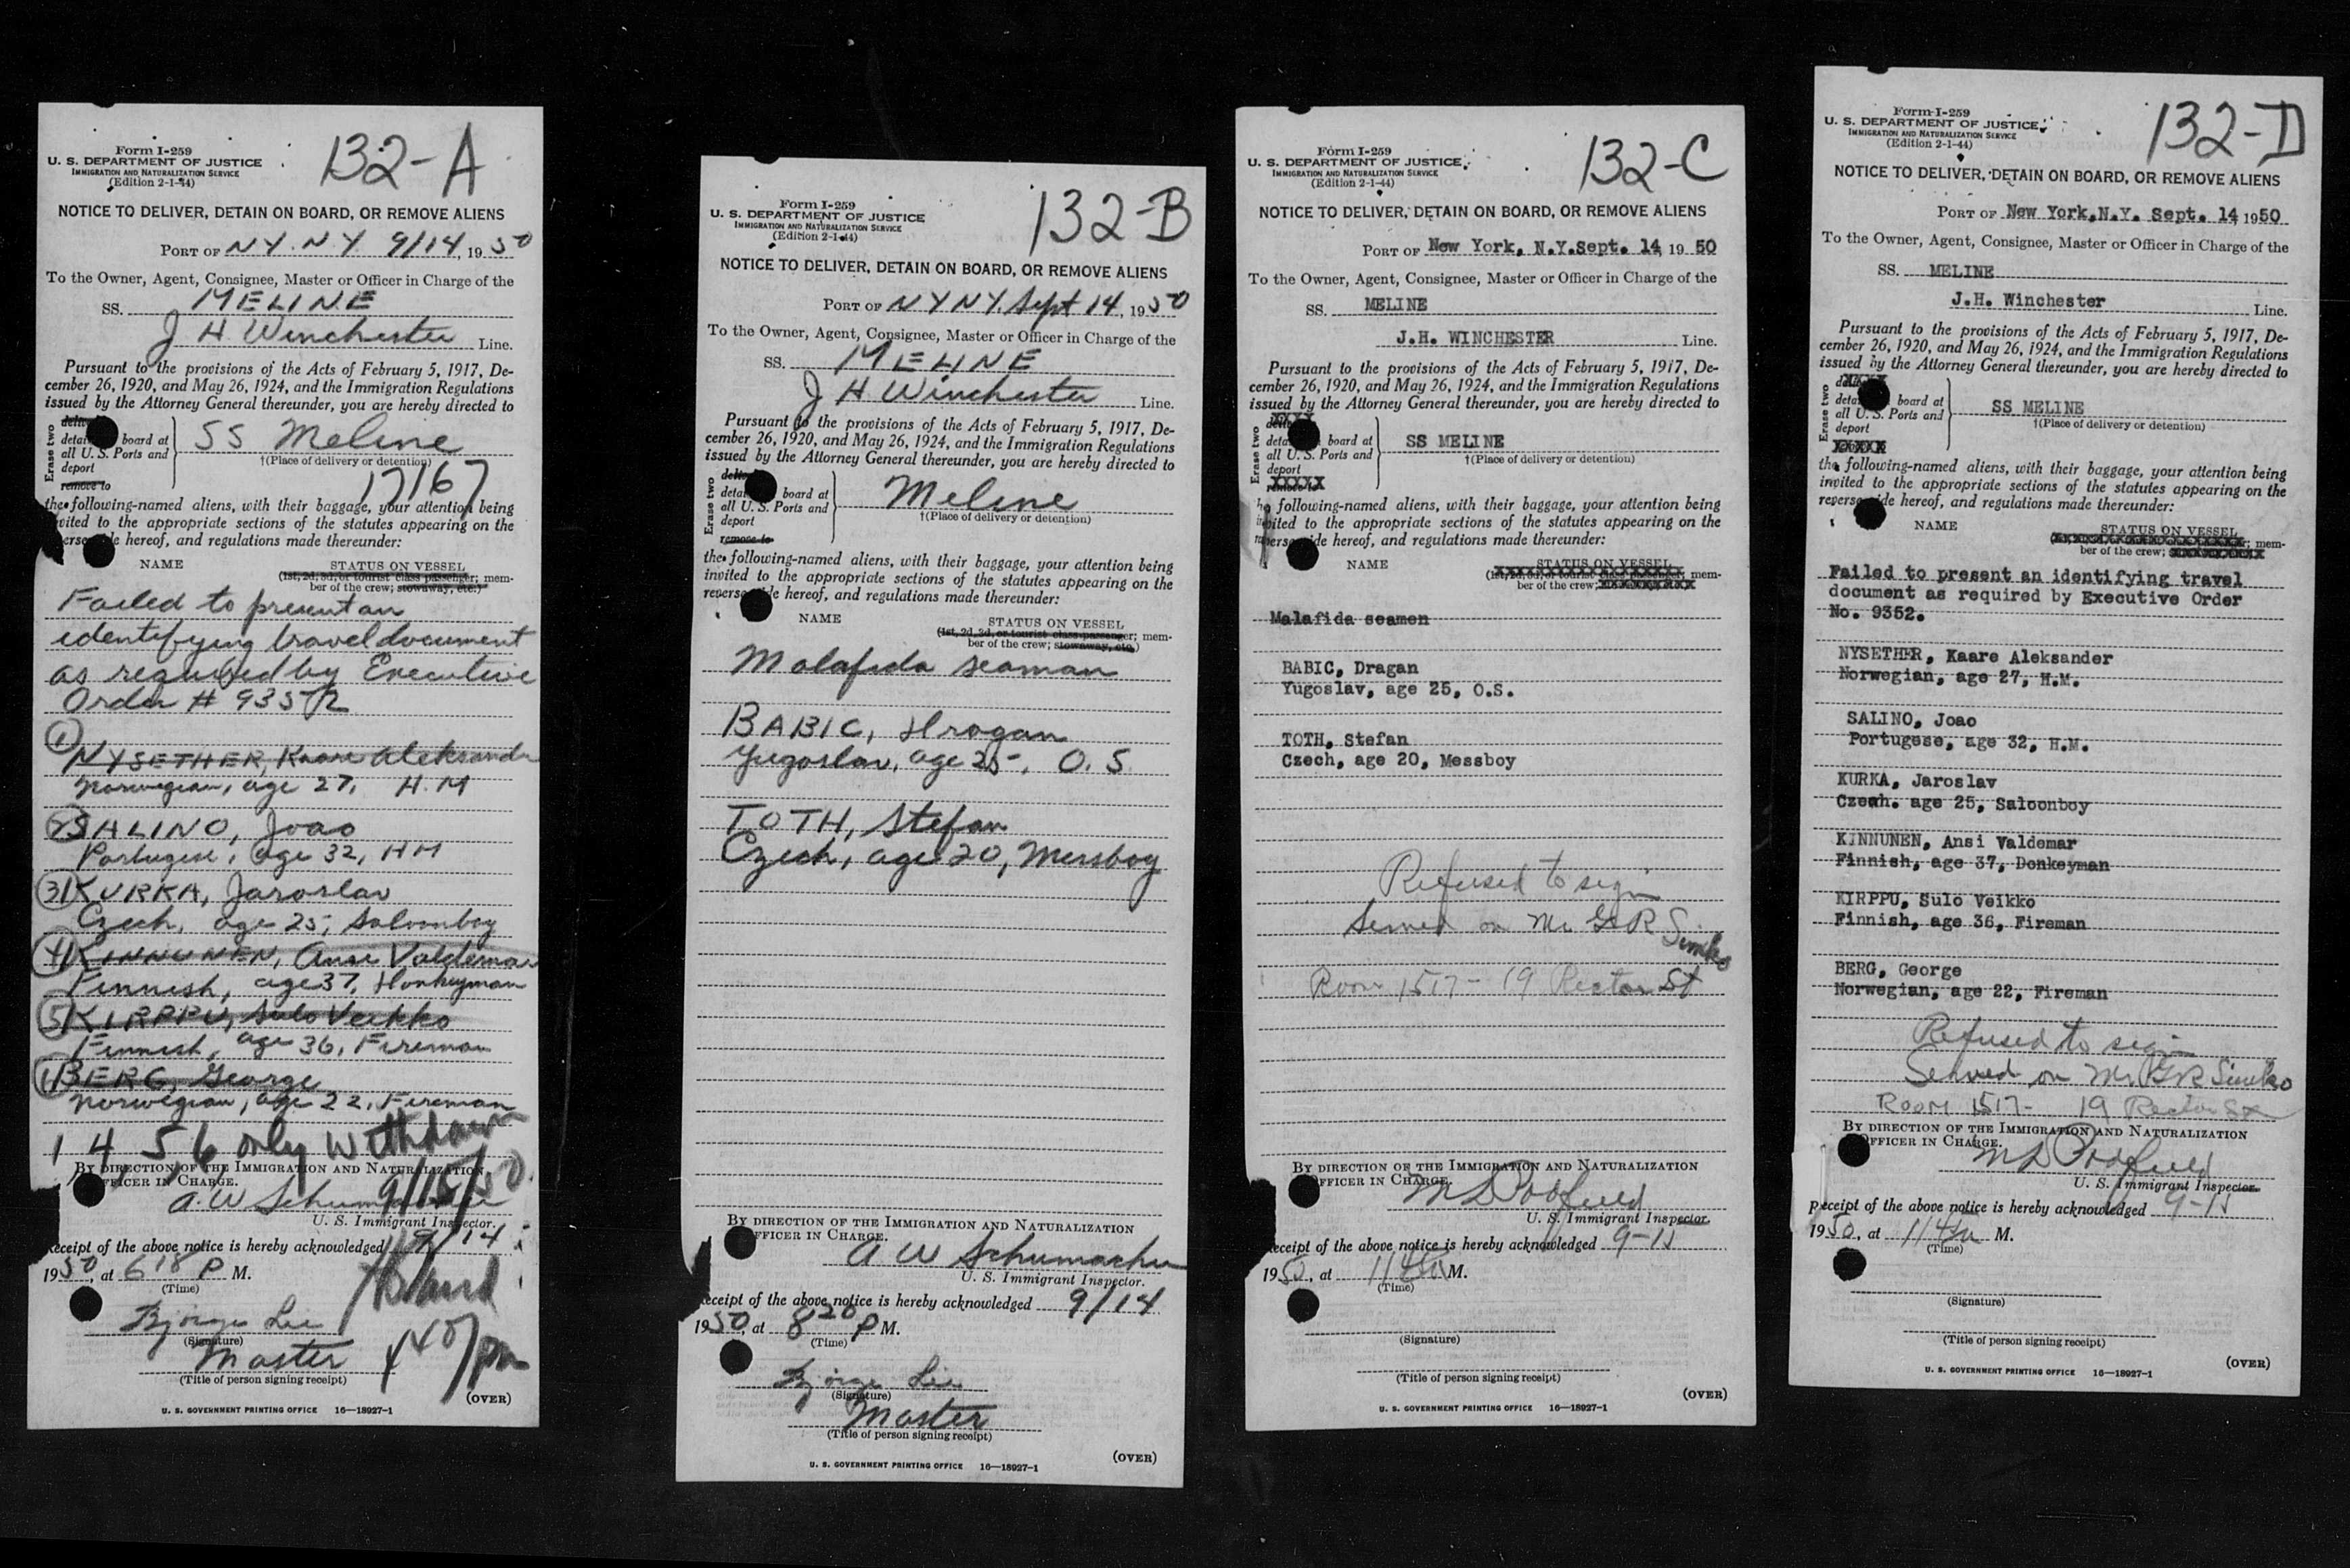 Form I-259
U. S. DEPARTMENT OF JUSTICE
IMMIGRATION AND NATURALIZATION SERVICE
(Edition 2-1-44)
132-A
NOTICE TO DELIVER, DETAIN ON BOARD, OR REMOVE ALIENS
PORT OF N Y. N Y 9/14, 1950
To the Owner, Agent, Consignee, Master or Officer in Charge of the
SS. MELINE
J H Winchester Line.
Pursuant to the provisions of the Acts of February 5, 1917, De-
cember 26, 1920, and May 26, 1924, and the Immigration Regulations
issued by the Attorney General thereunder, you are hereby directed to
Erase two
board at
all U. S. Ports and
deport
remove to
SS Meline
†(Place of delivery or detention)
17167
the following-named aliens, with their baggage, your attention being
invited to the appropriate sections of the statutes appearing on the
hereof, and regulations made thereunder:
NAME
STATUS ON VESSEL
(1st, 2d, 3d, or tourist class passenger; mem-
ber of the crew; stowaway, etc.)
Failed to present an
identifying travel document
as required by Executive
Order # 9352
1 NYSETHER, Kaare Aleksander
Norwegian, age 27, H.M
2 SALINO, Joao
Portugese, age 32, HM
3 KURKA, Jaroslav
Czech, age 25, Saloonboy
4 KINNUNEN, Ansi Valdemar
Finnish, age 37, Donkeyman
5 KIRPPU, Sulo Veikko
Finnish, age 36, Fireman
6 BERG, George
Norwegian, age 22, Fireman
1 4 5, 6 only withdawn
9/15/50
BY DIRECTION OF THE IMMIGRATION AND NATURALIZATION
OFFICER IN CHARGE.
A. W Schumacher
U. S. Immigrant Inspector.
Receipt of the above notice is hereby acknowledged 9/14
1950, at 6 18 P M.
(Time)
Bjorge Lie
(Signature)
Master
(Title of person signing receipt)
(OVER)
U. S. GOVERNMENT PRINTING OFFICE 16—18927-1
Form I-259
U. S. DEPARTMENT OF JUSTICE
IMMIGRATION AND NATURALIZATION SERVICE
(Edition 2-1-44)
132-B
NOTICE TO DELIVER, DETAIN ON BOARD, OR REMOVE ALIENS
PORT OF N Y N Y. Sept 14, 1950
To the Owner, Agent, Consignee, Master or Officer in Charge of the
SS. MELINE
J H Winchester Line.
Pursuant to the provisions of the Acts of February 5, 1917, De-
cember 26, 1920, and May 26, 1924, and the Immigration Regulations
issued by the Attorney General thereunder, you are hereby directed to
Erase two
board at
all U. S. Ports and
deport
remove to
Meline
†(Place of delivery or detention)
the following-named aliens, with their baggage, your attention being
invited to the appropriate sections of the statutes appearing on the
hereof, and regulations made thereunder:
NAME
STATUS ON VESSEL
(1st, 2d, 3d, or tourist class passenger; mem-
ber of the crew; stowaway, etc.)
Malafida seaman
BABIC, Dragan
Yugoslav, age 25, O. S.
TOTH, Stefan
Czech, age 20, Messboy
BY DIRECTION OF THE IMMIGRATION AND NATURALIZATION
OFFICER IN CHARGE.
A W Schumacher
U. S. Immigrant Inspector.
Receipt of the above notice is hereby acknowledged 9/14
1950, at 8 20 P M.
(Time)
Bjorge Lie
(Signature)
Master
(Title of person signing receipt)
(OVER)
U. S. GOVERNMENT PRINTING OFFICE 16—18927-1
Form I-259
U. S. DEPARTMENT OF JUSTICE
IMMIGRATION AND NATURALIZATION SERVICE
(Edition 2-1-44)
132-C
NOTICE TO DELIVER, DETAIN ON BOARD, OR REMOVE ALIENS
PORT OF New York, N.Y. Sept. 14 1950
To the Owner, Agent, Consignee, Master or Officer in Charge of the
SS. MELINE
J.H. WINCHESTER Line.
Pursuant to the provisions of the Acts of February 5, 1917, De-
cember 26, 1920, and May 26, 1924, and the Immigration Regulations
issued by the Attorney General thereunder, you are hereby directed to
Erase two
board at
all U. S. Ports and
deport
SS MELINE
†(Place of delivery or detention)
following-named aliens, with their baggage, your attention being
invited to the appropriate sections of the statutes appearing on the
hereof, and regulations made thereunder:
NAME
STATUS ON VESSEL
(1st, 2d, 3d, or tourist class passenger; mem-
ber of the crew;
Malafida seamen
BABIC, Dragan
Yugoslav, age 25, O.S.
TOTH, Stefan
Czech, age 20, Messboy
Refused to sign
Served on Mr G R Simko
Room 1517 - 19 Rector St
BY DIRECTION OF THE IMMIGRATION AND NATURALIZATION
OFFICER IN CHARGE.
U. S. Immigrant Inspector.
Receipt of the above notice is hereby acknowledged 9-15
1950, at M.
(Time)
(Signature)
(Title of person signing receipt)
(OVER)
U. S. GOVERNMENT PRINTING OFFICE 16—18927-1
Form I-259
U. S. DEPARTMENT OF JUSTICE
IMMIGRATION AND NATURALIZATION SERVICE
(Edition 2-1-44)
132-D
NOTICE TO DELIVER, DETAIN ON BOARD, OR REMOVE ALIENS
PORT OF New York, N.Y. Sept. 14 1950
To the Owner, Agent, Consignee, Master or Officer in Charge of the
SS. MELINE
J.H. Winchester Line.
Pursuant to the provisions of the Acts of February 5, 1917, De-
cember 26, 1920, and May 26, 1924, and the Immigration Regulations
issued by the Attorney General thereunder, you are hereby directed to
Erase two
board at
all U. S. Ports and
deport
SS MELINE
†(Place of delivery or detention)
the following-named aliens, with their baggage, your attention being
invited to the appropriate sections of the statutes appearing on the
hereof, and regulations made thereunder:
NAME
STATUS ON VESSEL
mem-
ber of the crew;
Failed to present an identifying travel
document as required by Executive Order
No. 9352.
NYSETHER, Kaare Aleksander
Norwegian, age 27, H.M.
SALINO, Joao
Portugese, age 32, H.M.
KURKA, Jaroslav
Czech. age 25, Saloonboy
KINNUNEN, Ansi Valdemar
Finnish, age 37, Donkeyman
KIRPPU, Sulo Veikko
Finnish, age 36, Fireman
BERG, George
Norwegian, age 22, Fireman
Refused to sign
Served on Mr G R Simko
Room 1517 - 19 Rector St
BY DIRECTION OF THE IMMIGRATION AND NATURALIZATION
OFFICER IN CHARGE.
U. S. Immigrant Inspector.
Receipt of the above notice is hereby acknowledged 9-15
1950, at M.
(Time)
(Signature)
(Title of person signing receipt)
(OVER)
U. S. GOVERNMENT PRINTING OFFICE 16—18927-1